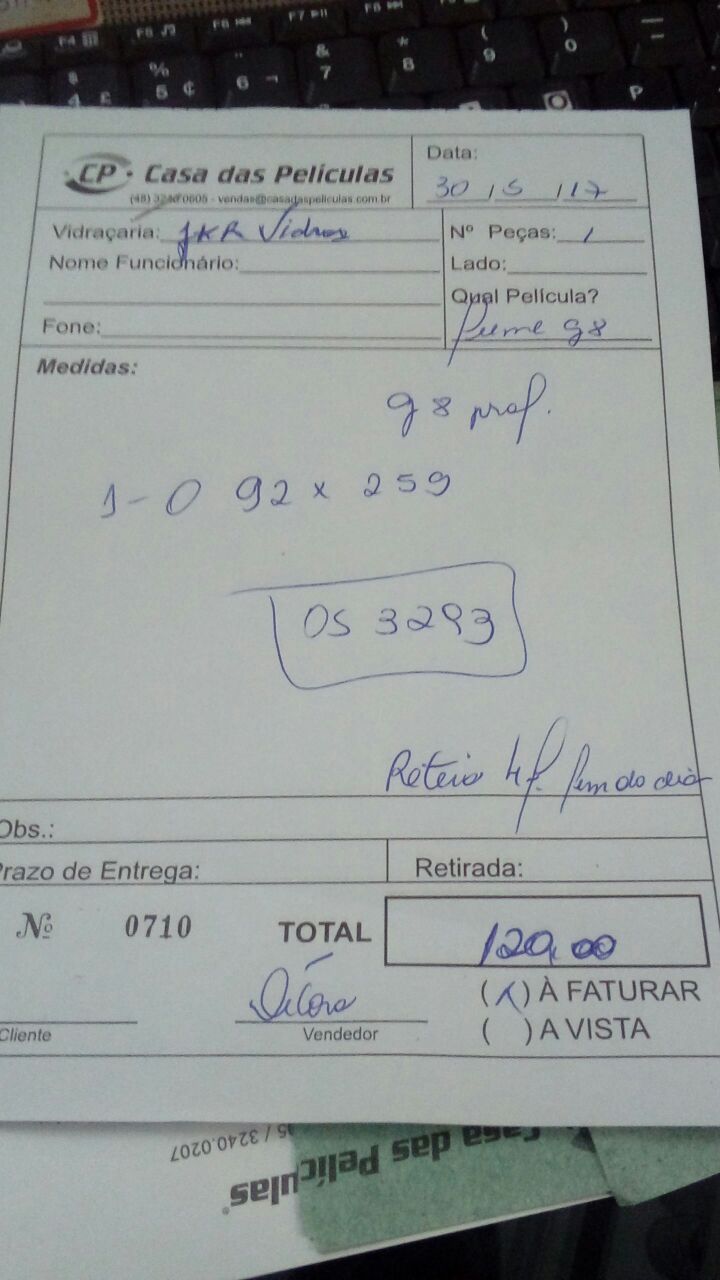 CP · Casa das Películas
(48) 3240 0605 - vendas@casadaspeliculas.com.br
Data:
30 / 5 / 17
Vidraçaria: JKR Vidros
Nº Peças: 1
Nome Funcionário:
Lado:
Qual Película?
Fone:
Fume G8
Medidas:
G8 prof.
1 - 0 92 x 259
OS 3293
Obs.:
Prazo de Entrega:
Retirada:
Nº 0710
TOTAL 120,00
Débora
(X) À FATURAR
( ) A VISTA
Cliente
Vendedor
5 / 3240.0207
Casa das Películas
Casa das Películas